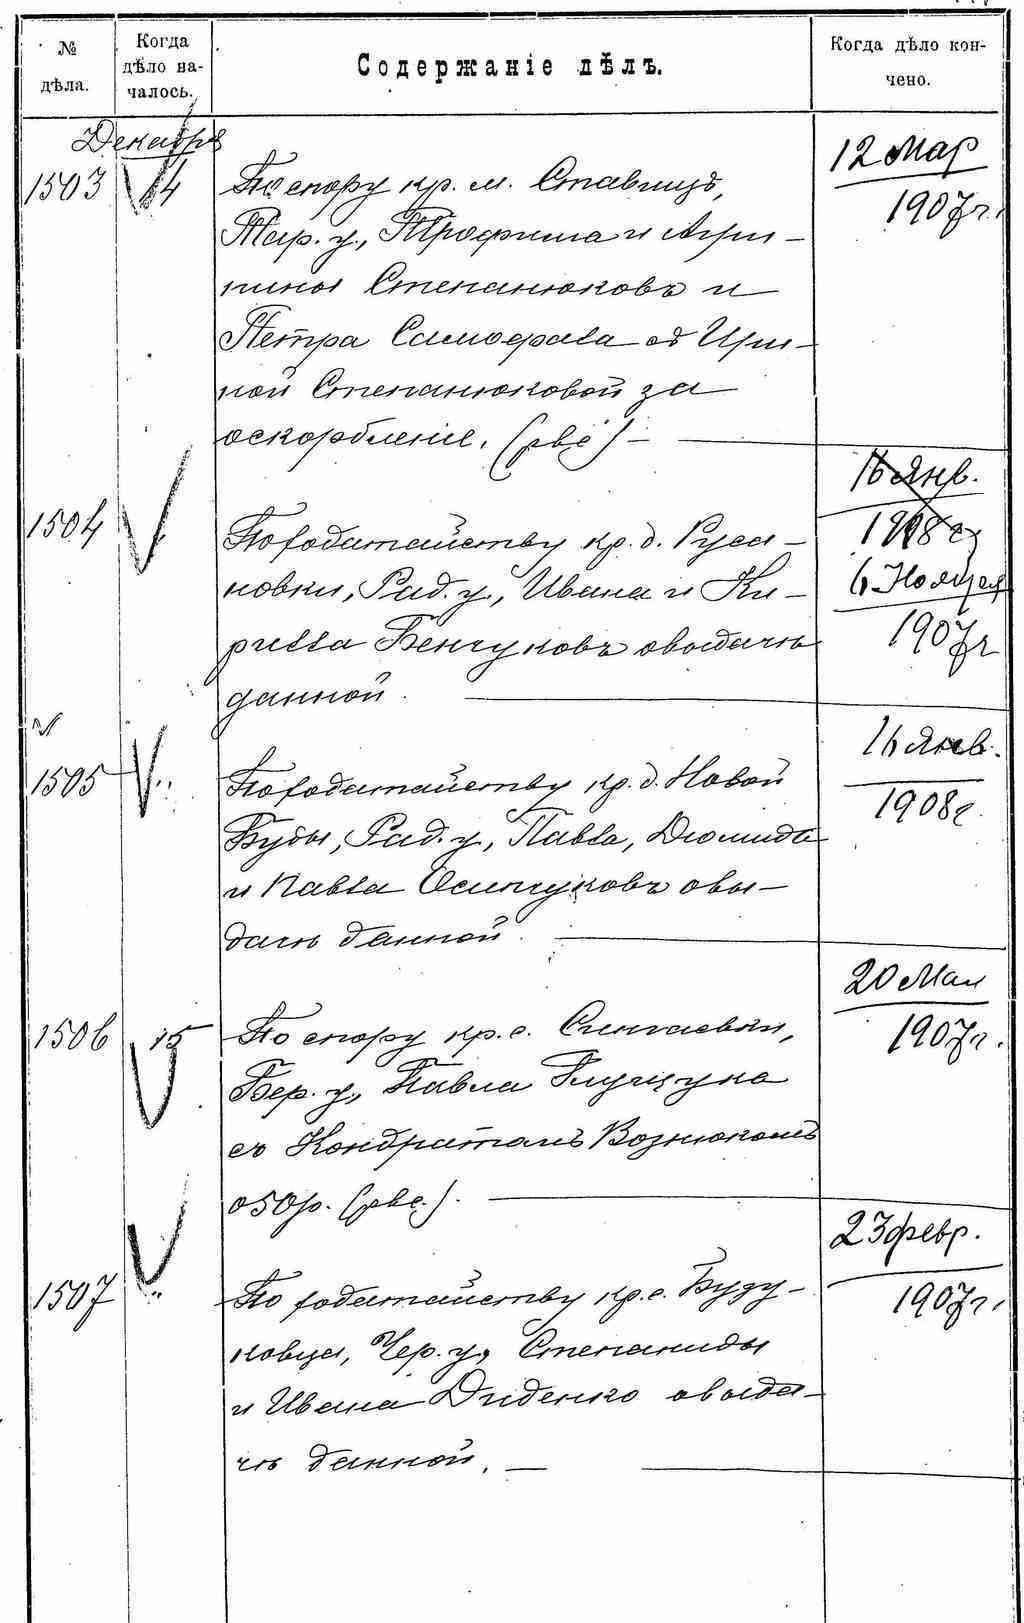 № дѣла.
Когда дѣло на-
чалось.
Содержаніе дѣлъ.
Когда дѣло кон-
чено.
Декабря
1503
14
По спору кр. м. Ставищъ,
Тар. у., Трофима и Агри-
пины Степанюковъ и
Петра Самофала съ Ири-
ной Степанюковой за
оскорбленіе.
12 Мар
1907 г.
1504
По ходатайству кр. д. Руса-
новки, Рад. у., Ивана и Ки-
рилла Бенчуковъ о выдачѣ
данной.
16 Янв.
1908 г
6 Ноября
1907 г
1505
По ходатайству кр. д. Новой
Буды, Рад. у., Павла, Дiомида
и Павла Осипчуковъ о вы-
дачѣ данной.
16 Янв.
1908 г.
1506
15
По спору кр. с.
Бер. у., Павла
съ Кондратомъ Вознюкомъ
о 50 р.
20 Мая
1907 г.
1507
По ходатайству кр. с. Бузу-
ковца, Чер. у., Степаниды
и Ивана Диденко о выда-
чѣ данной.
23 февр.
1907 г.